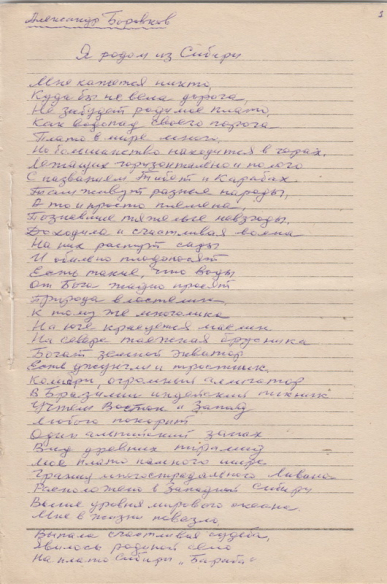 Александр Боровков
Я родом из Сибири
Мне кажется никто,
Куда бы не вела дорога,
Не забудет родимое плато,
Как водопад своего порога.
Плато в мире много,
Но большинство находится в горах,
Лежащих горизонтально и полого
С названием Тибет и Карабах.
Там живут разные народы,
А то и просто племена,
Познавшие тяжелые невзгоды,
Доходила и счастливая волна
На них растут сады
И обильно плодоносят
Есть такие, что воды
От Бога жадно просят
Природа властелин
К тому же многолика
На юге красуются маслин
На севере таежная брусника
Богат земной экватор
Есть джунгли и тростник
Комары, огромный аллигатор
В Бразилии индейский
Восток и Запад
Любого покорит
Один альпийский запах
Вид древних пирамид
Мое плато намного шире
Границ многострадального Ливана
Расположено в Западной Сибири
Выше уровня мирового океана.
Мне в жизни повезло,
Выпала счастливая судьба,
Явилось родиной село
На плато Сибири „Бараба"